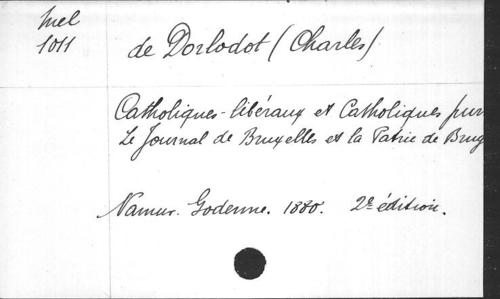 Mel
1011
de Dorlodot (Charles)
Catholiques-libéraux et Catholiques pur
Le Journal de Bruxelles et la Patrie de Brug
Namur. Godenne. 1880. 2e édition.